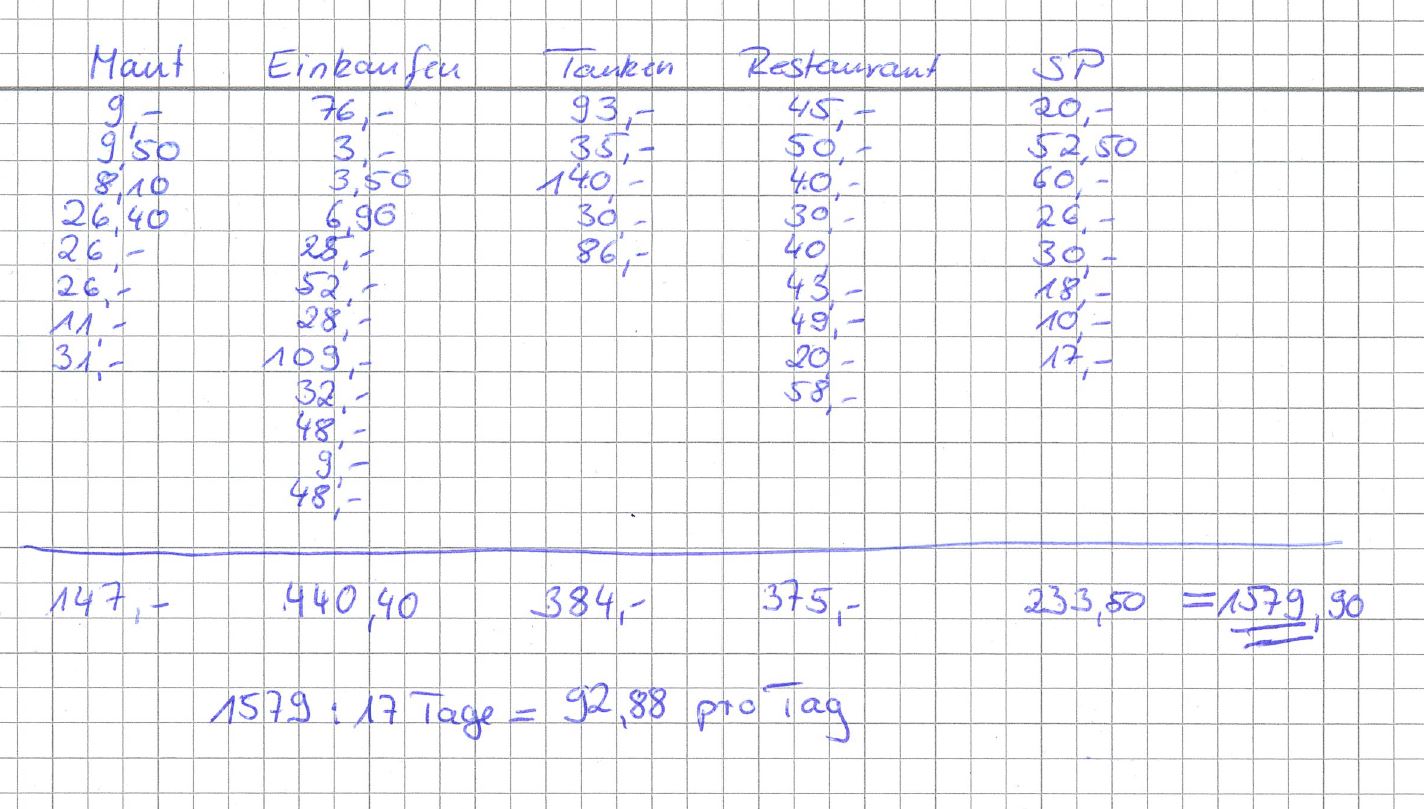 Maut Einkaufen Tanken Restaurant SP
9,- 76,- 93,- 45,- 20,-
9,50 3,- 35,- 50,- 52,50
8,10 3,50 140,- 40,- 60,-
26,40 6,90 30,- 30,- 26,-
26,- 25,- 86,- 40 30,-
26,- 52,- 43,- 18,-
11,- 28,- 49,- 10,-
31,- 109,- 20,- 17,-
32,- 58,-
48,-
9,-
48,-
147,- 440,40 384,- 375,- 233,50 =1579,90
1579 : 17 Tage = 92,88 pro Tag